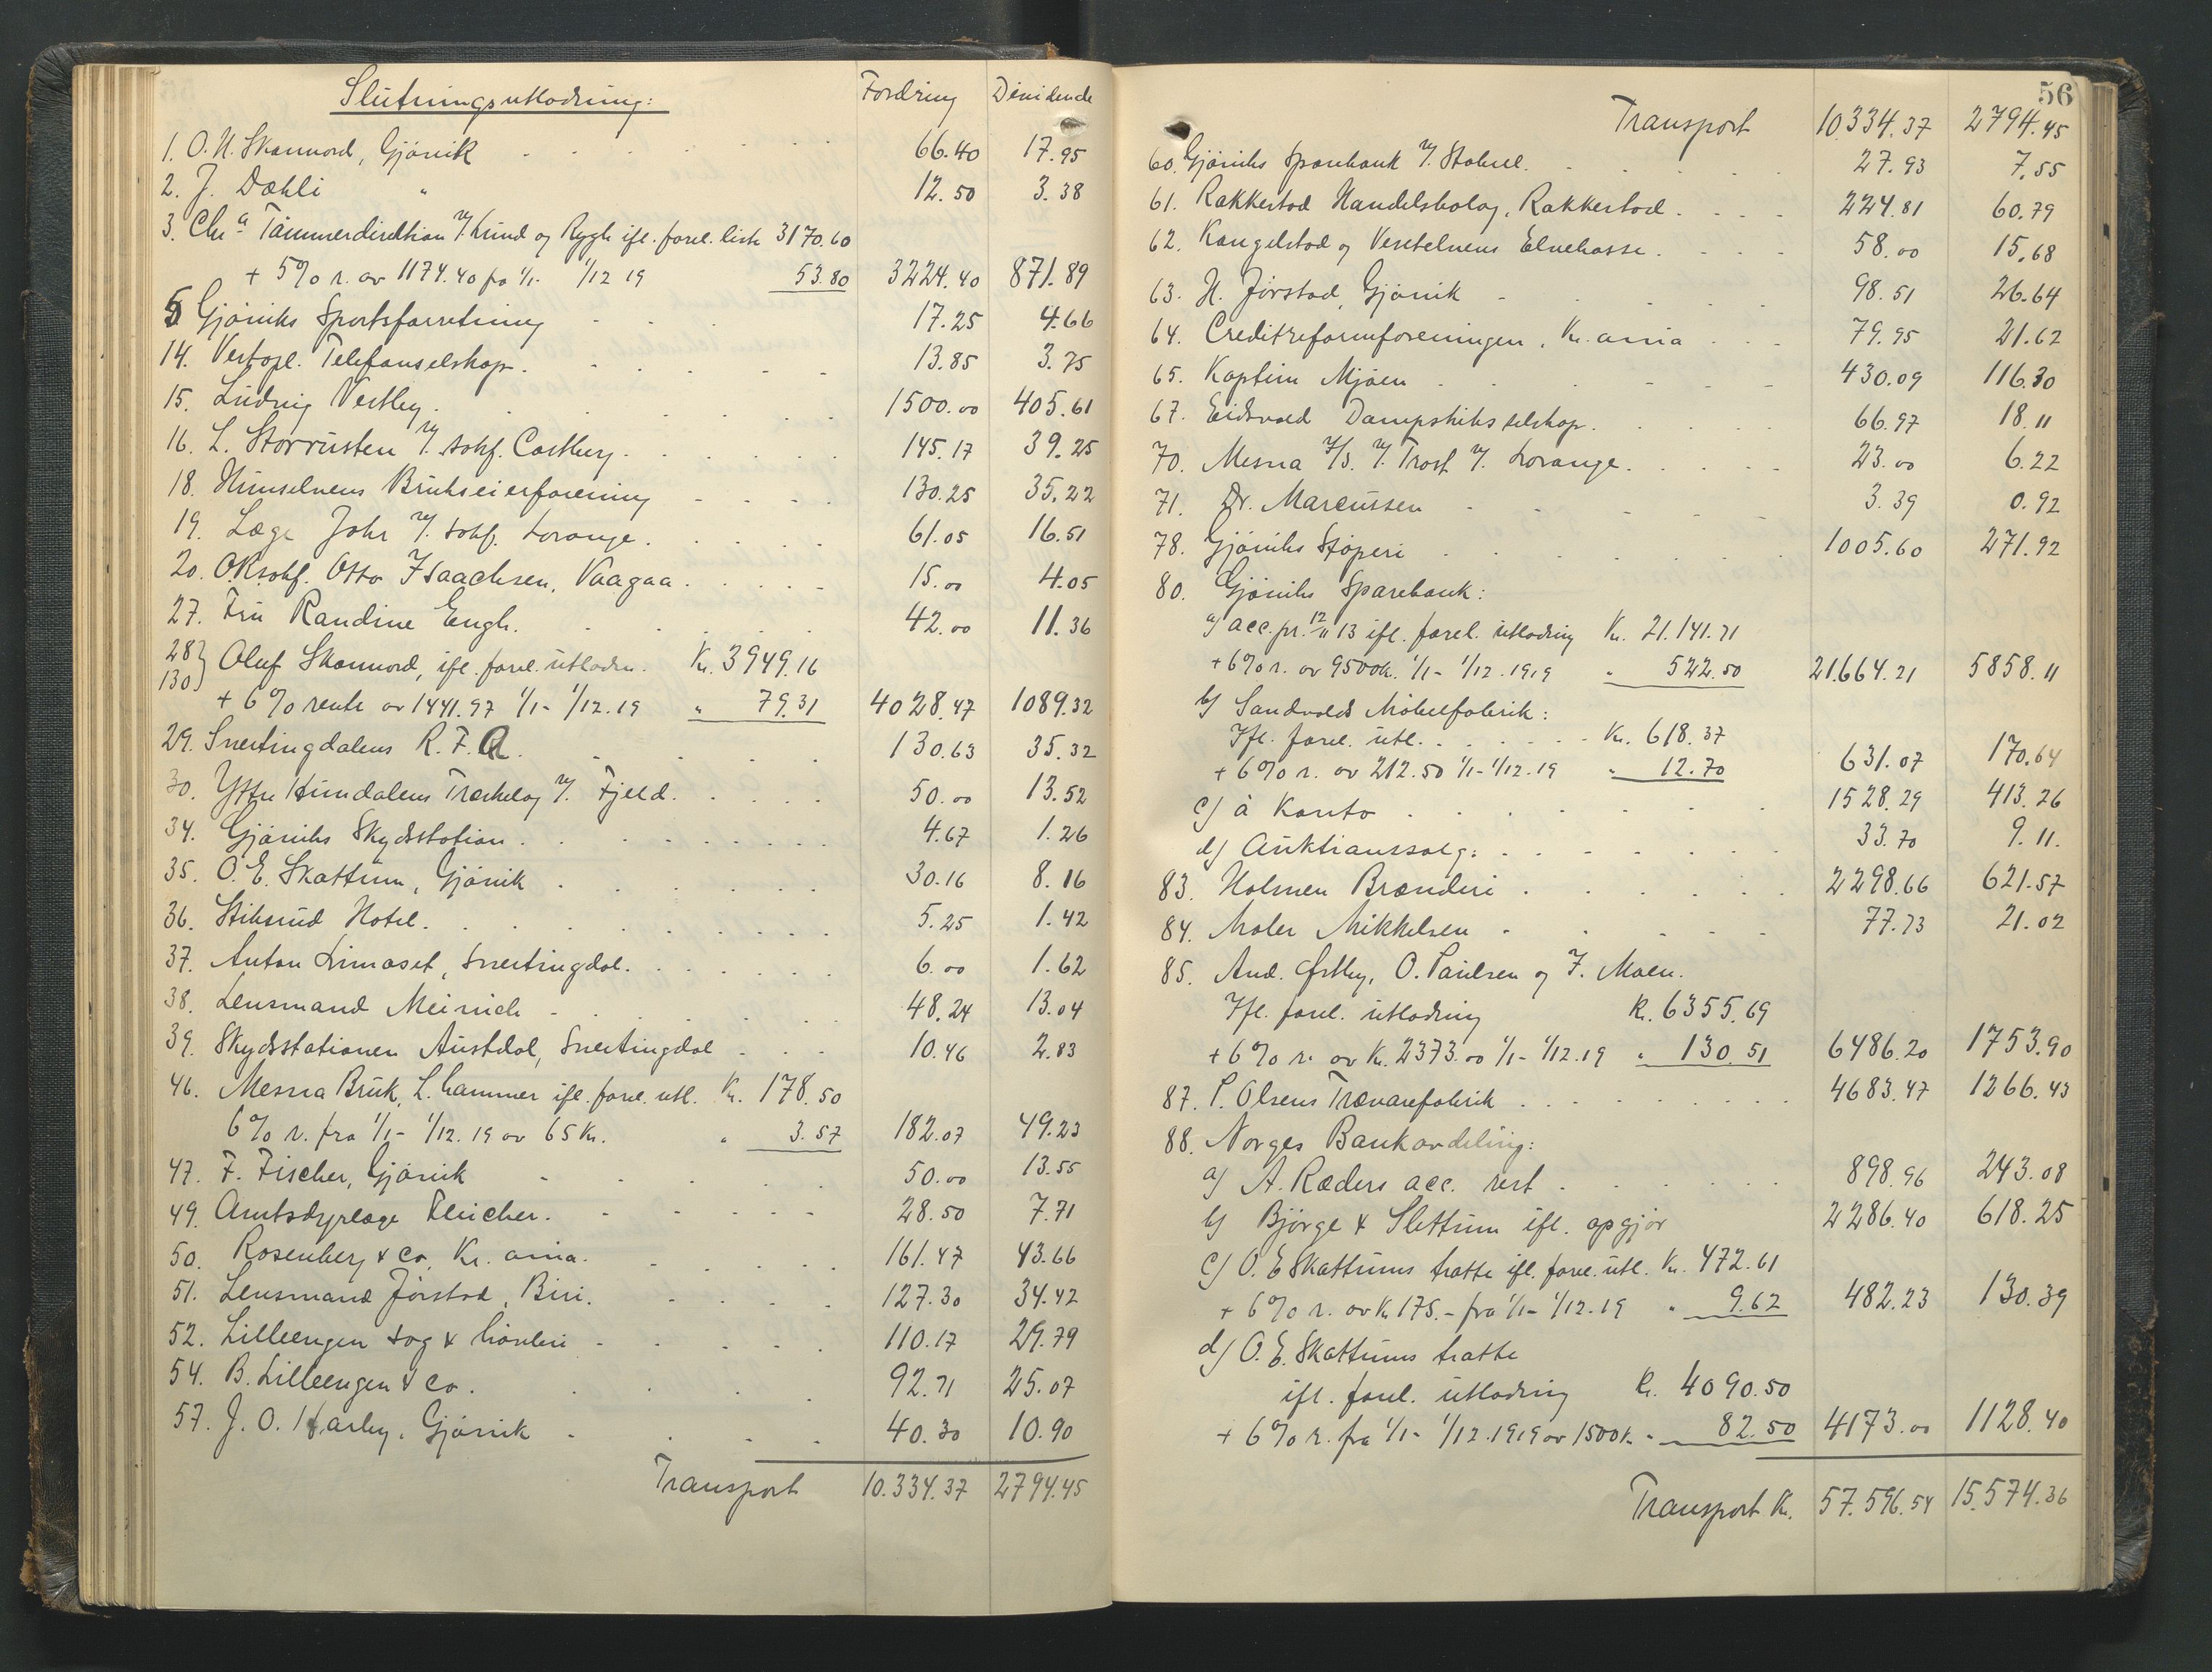 Slutningsutlodning: Fordring Dividende
1. O. N. Skonnord, Gjøvik 66.40 17.95
2. J. Dæhli " 12.50 3.38
3. Chr a Tømmerdirektion v/. Lund og Rygh ifl. forel. liste 3170.60
+ 5% r. av 1174.40 fra 1/1- 1/12 19 53.80 3224.40 871.89
5 Gjøviks Sportsforretning 17.25 4.66
14. Vestopl. Telefonselskap. 13.85 3.75
15. Ludvig Vestby. 1500.00 405.61
16. L. Storrusten v/. sakf. Castberg. 145.17 39.25
18. Hunselvens Brukseierforening 130.25 35.22
19. Læge Johr v/. sakf. Lorange. 61.05 16.51
20. O.R.sakf. Otto Isaachsen, Vaagaa. 15.00 4.05
27. Fru Randine Engh. 42.00 11.36
28 } Oluf Skonnord, ifl. forel. utlodn. Kr. 3949.16
130 } + 6% rente av 1441.97 1/1- 1/12.19 " 79.31 4028.47 1089.32
29. Snertingdalens R. F. A. 130.63 35.32
30. Yttre Hundalens Træskelag v/. Fjeld. 50.00 13.52
34. Gjøviks Skydsstation. 4.67 1.26
35. O. E. Skattum, Gjøvik 30.16 8.16
36. Stiksrud Hotel. 5.25 1.42
37. Anton Limoset, Snertingdal. 6.00 1.62
38. Lensmand Meinich 48.24 13.04
39. Skydsstationen Austdal, Snertingdal 10.46 2.83
46. Mesna Bruk, L.hammer ifl. forel. utl. Kr. 178.50
6% r. fra 1/1- 1/12.19 av 65 Kr. " 3.57 182.07 49.23
47. F. Fischer, Gjøvik 50.00 13.55
49. Amtsdyrlæge Fleicher. 28.50 7.71
50. Rosenberg & Co, Kr. ania. 161.47 43.66
51. Lensmand Jørstad, Biri. 127.30 34.42
52. Lilleengen Sag & Høvleri 110.17 29.79
54. B. Lilleengen & Co. 92.71 25.07
57. J. O. Harby, Gjøvik 40.30 10.90
Transport 10.334.37 2794.45
56
Transport 10334.37 2794.45
60. Gjøviks Sparebank v/. Stabul. 27.93 7.55
61. Rakkestad Handelsbolag, Rakkestad. 224.81 60.79
62. Kongelstad og Vesletelvens Elvekasse. 58.00 15.68
63. H. Jørstad, Gjøvik 98.51 26.64
64. Creditreformforeningen, Kr. ania 79.95 21.62
65. Kaptein Mjøen 430.09 116.30
67. Eidsvold Dampskibsselskap. 66.97 18.11
70. Mesna T/s. v/. Trost v/. Lorange. 23.00 6.22
71. Dr. Marcussen 3.39 0.92
78. Gjøviks Støperi 1005.60 271.92
80. Gjøviks Sparebank:
a) acc. pr. 12/11 13 ifl. forel. utlodning Kr. 21.141.71
+ 6% r. av 9500 kr. 1/1- 1/12.1919 " 522.50 21.664.21 5858.11
b) Sandvolds Møbelfabrik:
Ifl. forel. utl. Kr. 618.37
+ 6% r. av 212.50 1/1-1/12.19 " 12.70 631.07 170.64
c) à Konto 1528.29 413.26
d) Auktionssalg: 33.70 9.11.
83. Holmen Brænderi 2298.66 621.57
84. Maler Mikkelsen 77.73 21.02
85. And. Østby, O. Paulsen og F. Moen.
Ifl. forel. utlodning Kr. 6355.69
+ 6% r. av Kr. 2373.00 1/1- 1/12.19 " 130.51 6486.20 1753.90
87. P. Olsens Trævarefabrik 4683.47 1266.43
88. Norges Bankavdeling:
a) A. Ræders acc. rest 898.96 243.08
b) Bjørge & Slettum ifl. opgjør 2286.40 618.25
c) O. E Skattums tratte ifl. forel. utl. Kr. 472.61
+ 6% r. av Kr 175.- fra 1/1- 1/12.19 " 9.62 482.23 130.39
d) O. E. Skattums tratte
ifl. forel. utlodning Kr. 4090.50
+ 6% r. fra 1/1- 1/12.1919 av 1500 Kr. " 82.50 4173.00 1128.40
Transport Kr. 57.596.54 15.574.36